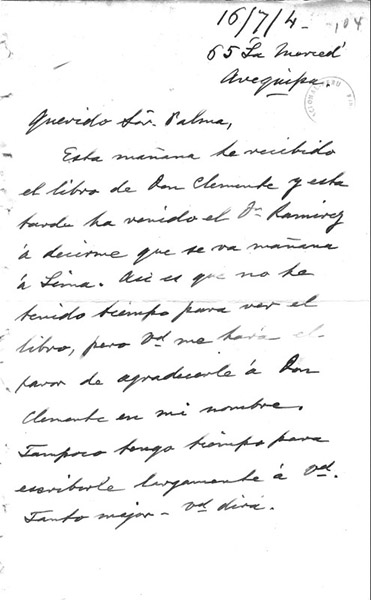 16/7/4-
104
65 La Merced
Arequipa
Querido Sor. Palma,
Esta mañana he recibido
el libro de Don Clemente y esta
tarde ha venido el Dr Ramirez
á decirme que se va mañana
á Lima. Asi es que no he
tenido tiempo para ver el
libro, pero Vd me hará el
favor de agradecerle á Don
Clemente en mi nombre.
Tampoco tengo tiempo para
escribirle largamente á Vd.
Tanto mejor - Vd dirá.